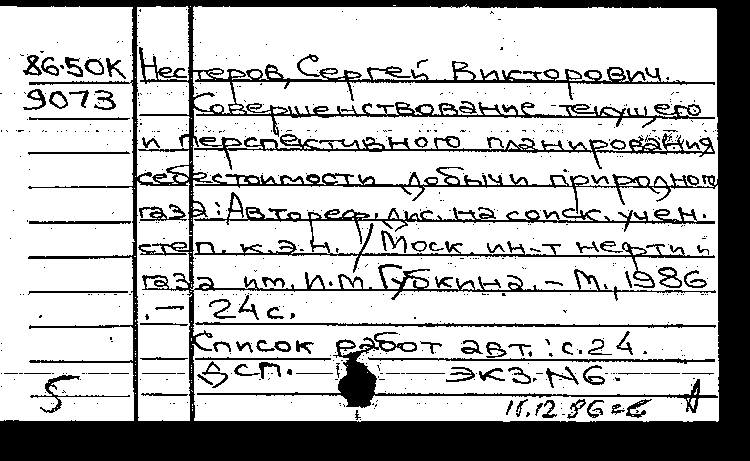 86-50К Нестеров, Сергей Викторович.
9073 Совершенствование текущего
и перспективного планирования
себестоимости добычи природного
газа: Автореф. дис. на соиск. учен.
степ. к.э.н. / Моск. ин-т нефти и
газа им. И.М. Губкина. - М., 1986
. - 24 с.
Список работ авт.: с. 24.
ДСП. ЭКЗ. N6.
5 11.12.86